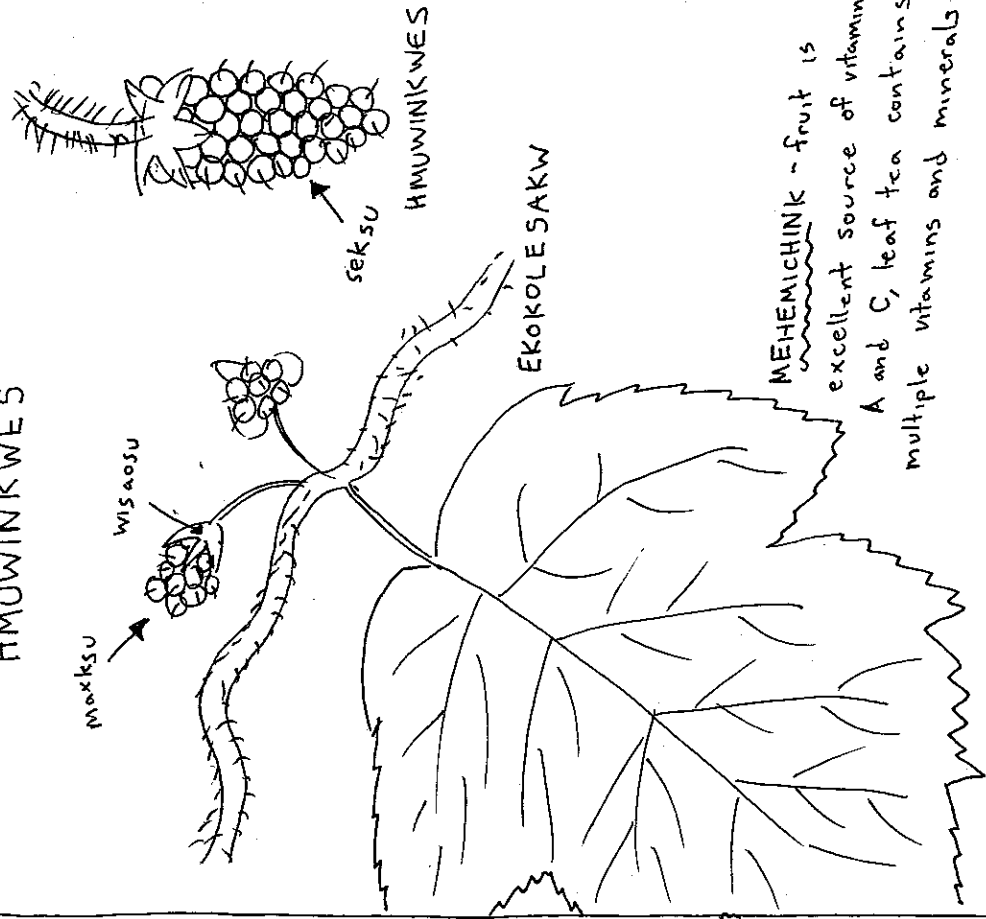 HMUWINKWES
maxksu
wisaosu
seksu
HMUWINKWES
EKOKOLESAKW
MEHEMICHINK - fruit is
excellent source of vitamin
A and C, leaf tea contains
multiple vitamins and minerals